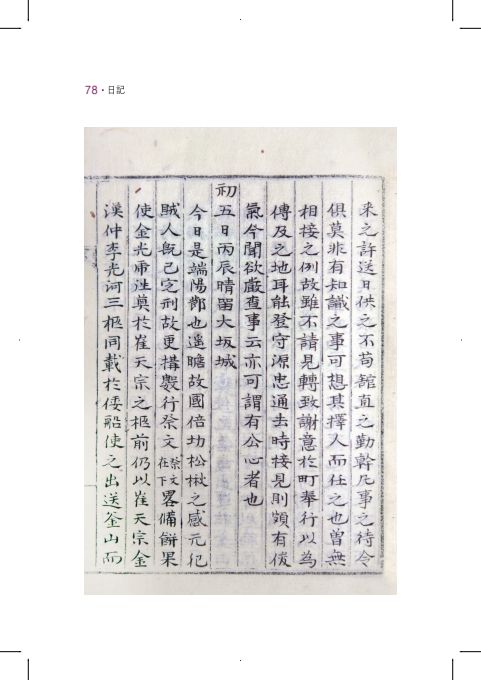 78 · 日記
來之許送日供之不苟館直之勤幹凡事之待令
俱莫非有知識之事可想其擇人而任之也曾無
相接之例故雖不請見轉致謝意於町奉行以爲
傳及之地耳能登守源忠通去時接見則頗有俊
氣今聞欲嚴查事云亦可謂有公心者也
初五日丙辰晴留大坂城
今日是端陽節也遙瞻故國倍切松楸之感元犯
賊人旣已定刑故更搆數行祭文祭文在下畧備餠果
使金光 往奠於崔天宗之柩前仍以崔天宗金
漢仲李光河三柩同載於倭船使之出送釜山而